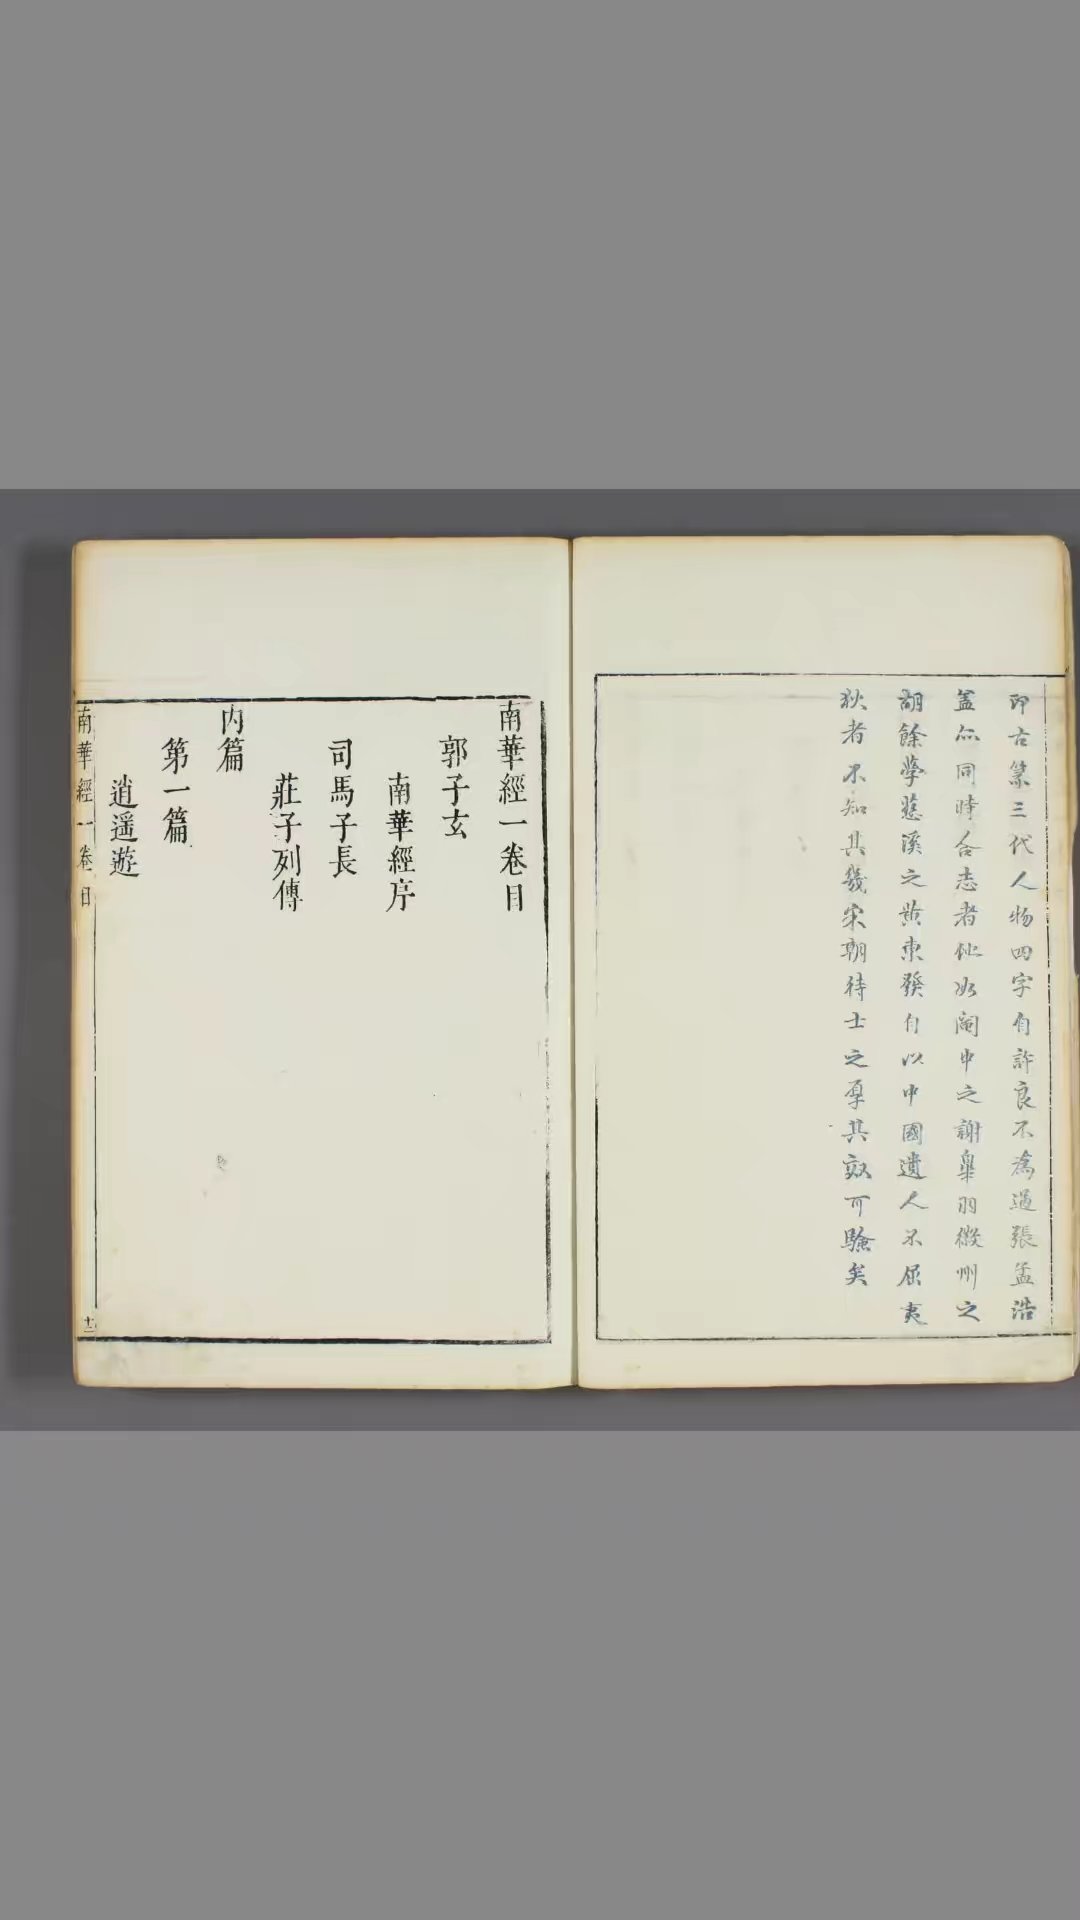 印古篆三代人物四字自許良不為過張孟浩
盖亦同時合志者他如閩中之謝皐羽徽州之
胡餘學慈溪之黃東發自以中國遺人不屈夷
狄者不知其幾宋朝待士之厚其效可驗矣
南華經一卷目
郭子玄
南華經序
司馬子長
莊子列傳
內篇
第一篇
逍遥遊
南華經一卷目
十二